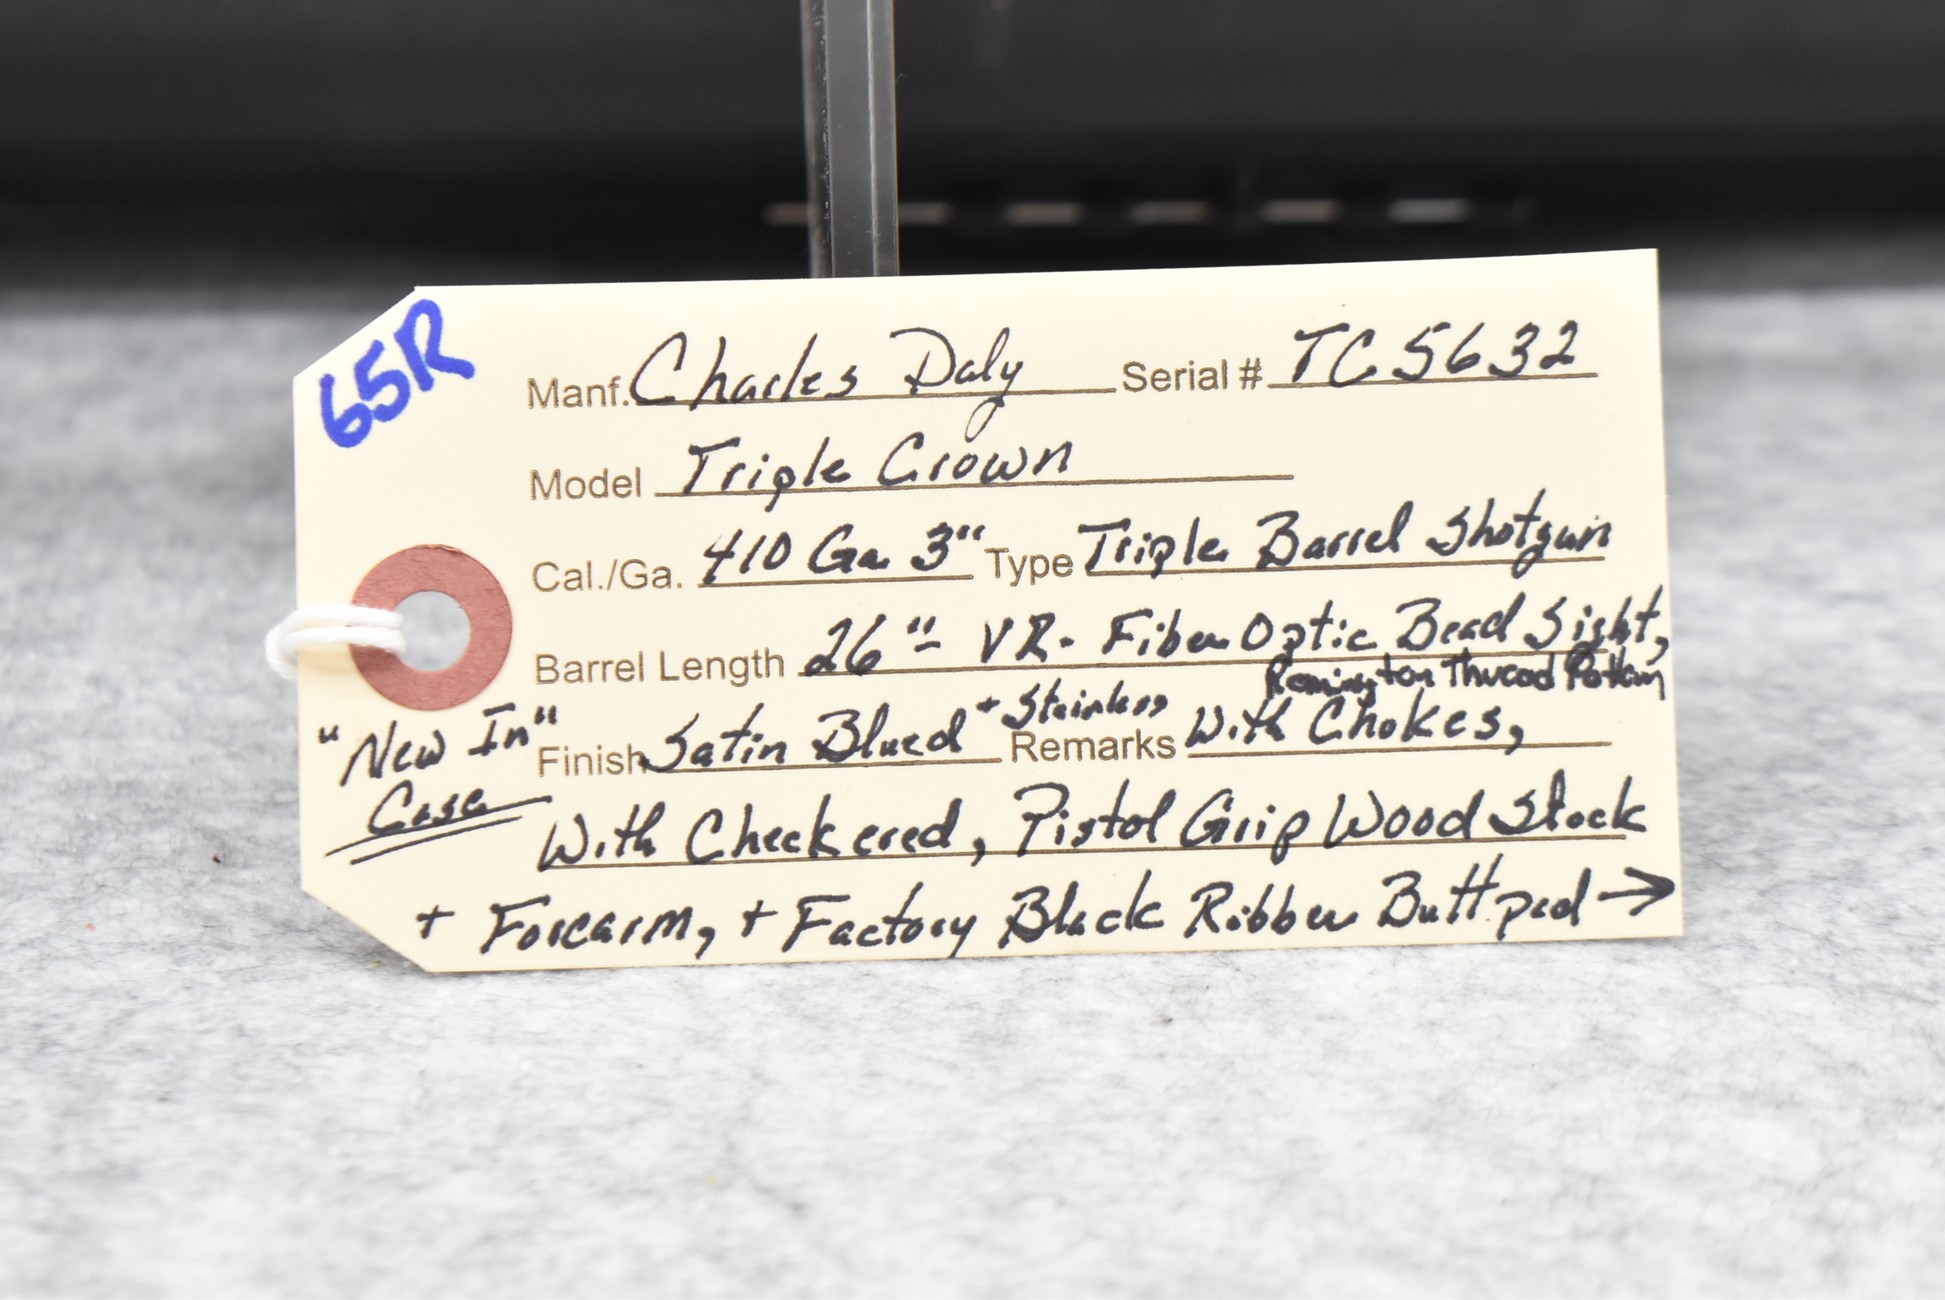 65R
Manf. Charles Daly Serial # TC5632
Model Triple Crown
Cal./Ga. 410 Ga 3" Type Triple Barrel Shotgun
Barrel Length 26"- VR- Fiber Optic Bead Sight,
Remington Thread Pattern
"New In"
Case
Finish Satin Blued + Stainless Remarks With Chokes,
With Checkered, Pistol Grip Wood Stock
+ Forearm, + Factory Black Ribber Buttpad →